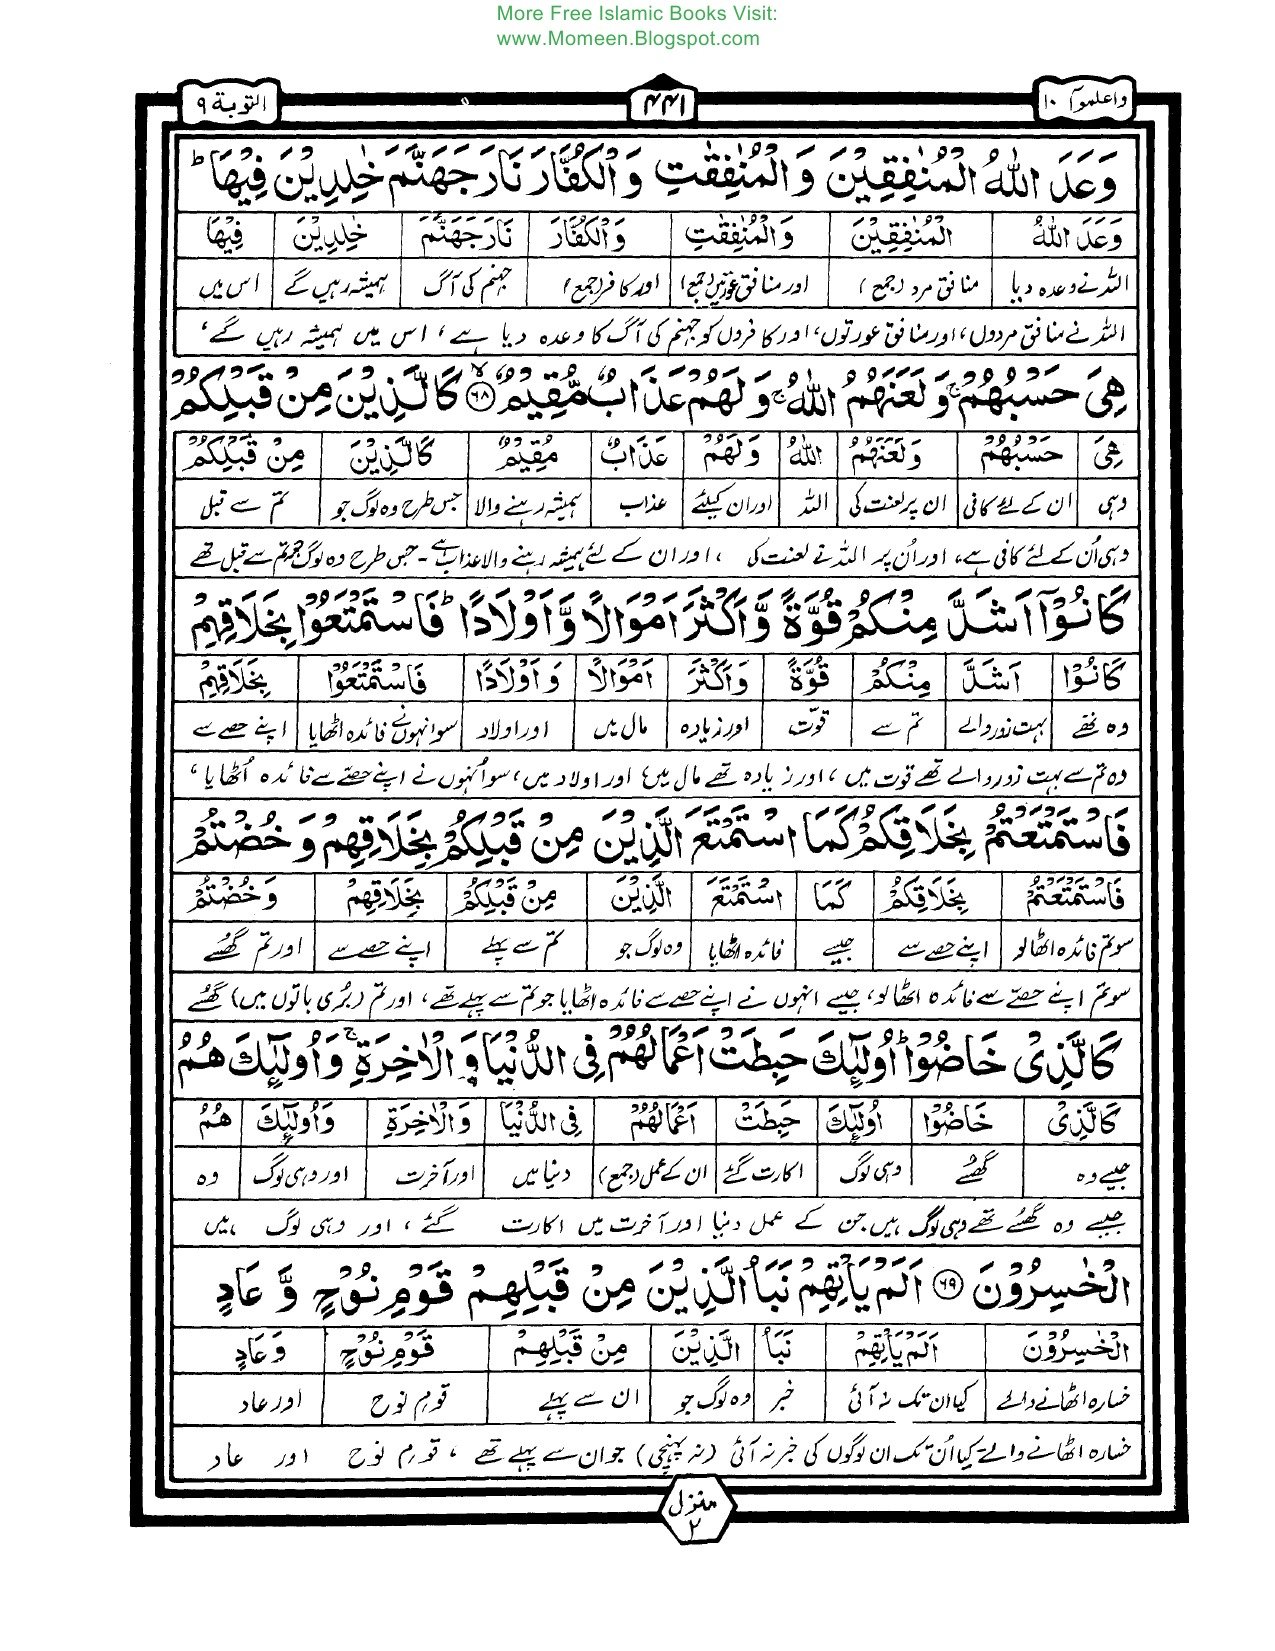 More Free Islamic Books Visit:
www.Momeen.Blogspot.com
واعلموآ ۱۰
۴۴۱
التوبة ۹
وَعَدَ اللّٰهُ الْمُنٰفِقِيْنَ وَالْمُنٰفِقٰتِ وَالْكُفَّارَ نَارَ جَهَنَّمَ خٰلِدِيْنَ فِيْهَا ؕ
وَعَدَ اللّٰهُ الْمُنٰفِقِيْنَ وَالْمُنٰفِقٰتِ وَالْكُفَّارَ نَارَ جَهَنَّمَ خٰلِدِيْنَ فِيْهَا
اللہ نے وعدہ دیا منافق مرد (جمع) اور منافق عورتیں (جمع) اور کافر (جمع) جہنم کی آگ ہمیشہ رہیں گے اس میں
اللہ نے منافق مردوں، اور منافق عورتوں، اور کافروں کو جہنم کی آگ کا وعدہ دیا ہے، اس میں ہمیشہ رہیں گے،
هِيَ حَسْبُهُمْ ۚ وَلَعَنَهُمُ اللّٰهُ ۚ وَلَهُمْ عَذَابٌ مُّقِيْمٌ ۙ ﴿۶۸﴾ كَالَّذِيْنَ مِنْ قَبْلِكُمْ
هِيَ حَسْبُهُمْ وَلَعَنَهُمُ اللّٰهُ وَلَهُمْ عَذَابٌ مُقِيْمٌ كَالَّذِيْنَ مِنْ قَبْلِكُمْ
وہی ان کے لئے کافی ان پر لعنت کی اللہ اور ان کیلئے عذاب ہمیشہ رہنے والا جس طرح وہ لوگ جو تم سے قبل
وہی اُن کے لئے کافی ہے، اور اُن پر اللہ نے لعنت کی، اور ان کے لئے ہمیشہ رہنے والا عذاب ہے۔ جس طرح وہ لوگ جو تم سے قبل تھے
كَانُوْۤا اَشَدَّ مِنْكُمْ قُوَّةً وَّاَكْثَرَ اَمْوَالًا وَّاَوْلَادًا ؕ فَاسْتَمْتَعُوْا بِخَلَاقِهِمْ
كَانُوْا اَشَدَّ مِنْكُمْ قُوَّةً وَّاَكْثَرَ اَمْوَالًا وَ اَوْلَادًا فَاسْتَمْتَعُوْا بِخَلَاقِهِمْ
وہ تھے بہت زور والے تم سے قوّت اور زیادہ مال میں اور اولاد سو انہوں نے فائدہ اٹھایا اپنے حصے سے
وہ تم سے بہت زور والے تھے قوت میں، اور زیادہ تھے مال میں اور اولاد میں، سو اُنہوں نے اپنے حصّے سے فائدہ اُٹھایا،
فَاسْتَمْتَعْتُمْ بِخَلَاقِكُمْ كَمَا اسْتَمْتَعَ الَّذِيْنَ مِنْ قَبْلِكُمْ بِخَلَاقِهِمْ وَخُضْتُمْ
فَاسْتَمْتَعْتُمْ بِخَلَاقِكُمْ كَمَا اسْتَمْتَعَ الَّذِيْنَ مِنْ قَبْلِكُمْ بِخَلَاقِهِمْ وَخُضْتُمْ
سو تم فائدہ اٹھا لو اپنے حصے سے جیسے فائدہ اٹھایا وہ لوگ جو تم سے پہلے اپنے حصے سے اور تم گھسے
سو تم اپنے حصّے سے فائدہ اٹھا لو، جیسے انہوں نے اپنے حصے سے فائدہ اٹھایا جو تم سے پہلے تھے، اور تم (بُری باتوں میں) گھُسے
كَالَّذِيْ خَاضُوْا ؕ اُولٰٓئِكَ حَبِطَتْ اَعْمَالُهُمْ فِي الدُّنْيَا وَالْاٰخِرَةِ ۚ وَاُولٰٓئِكَ هُمُ
كَالَّذِيْ خَاضُوْا اُولٰٓئِكَ حَبِطَتْ اَعْمَالُهُمْ فِي الدُّنْيَا وَالْاٰخِرَةِ وَاُولٰٓئِكَ هُمُ
جیسے وہ گھُسے وہی لوگ اکارت گئے ان کے عمل (جمع) دنیا میں اور آخرت اور وہی لوگ وہ
جیسے وہ گھُسے تھے وہی لوگ ہیں جن کے عمل دنیا اور آخرت میں اکارت گئے، اور وہی لوگ ہیں
الْخٰسِرُوْنَ ﴿۶۹﴾ اَلَمْ يَاْتِهِمْ نَبَاُ الَّذِيْنَ مِنْ قَبْلِهِمْ قَوْمِ نُوْحٍ وَّ عَادٍ
الْخٰسِرُوْنَ اَلَمْ يَاْتِهِمْ نَبَاُ الَّذِيْنَ مِنْ قَبْلِهِمْ قَوْمِ نُوْحٍ وَّعَادٍ
خسارہ اٹھانے والے کیا ان تک نہ آئی خبر وہ لوگ جو ان سے پہلے قوم نوح اور عاد
خسارہ اٹھانے والے۔ کیا اُن تک ان لوگوں کی خبر نہ آئی (نہ پہنچی) جو ان سے پہلے تھے، قوم نوح اور عاد
منزل
۲